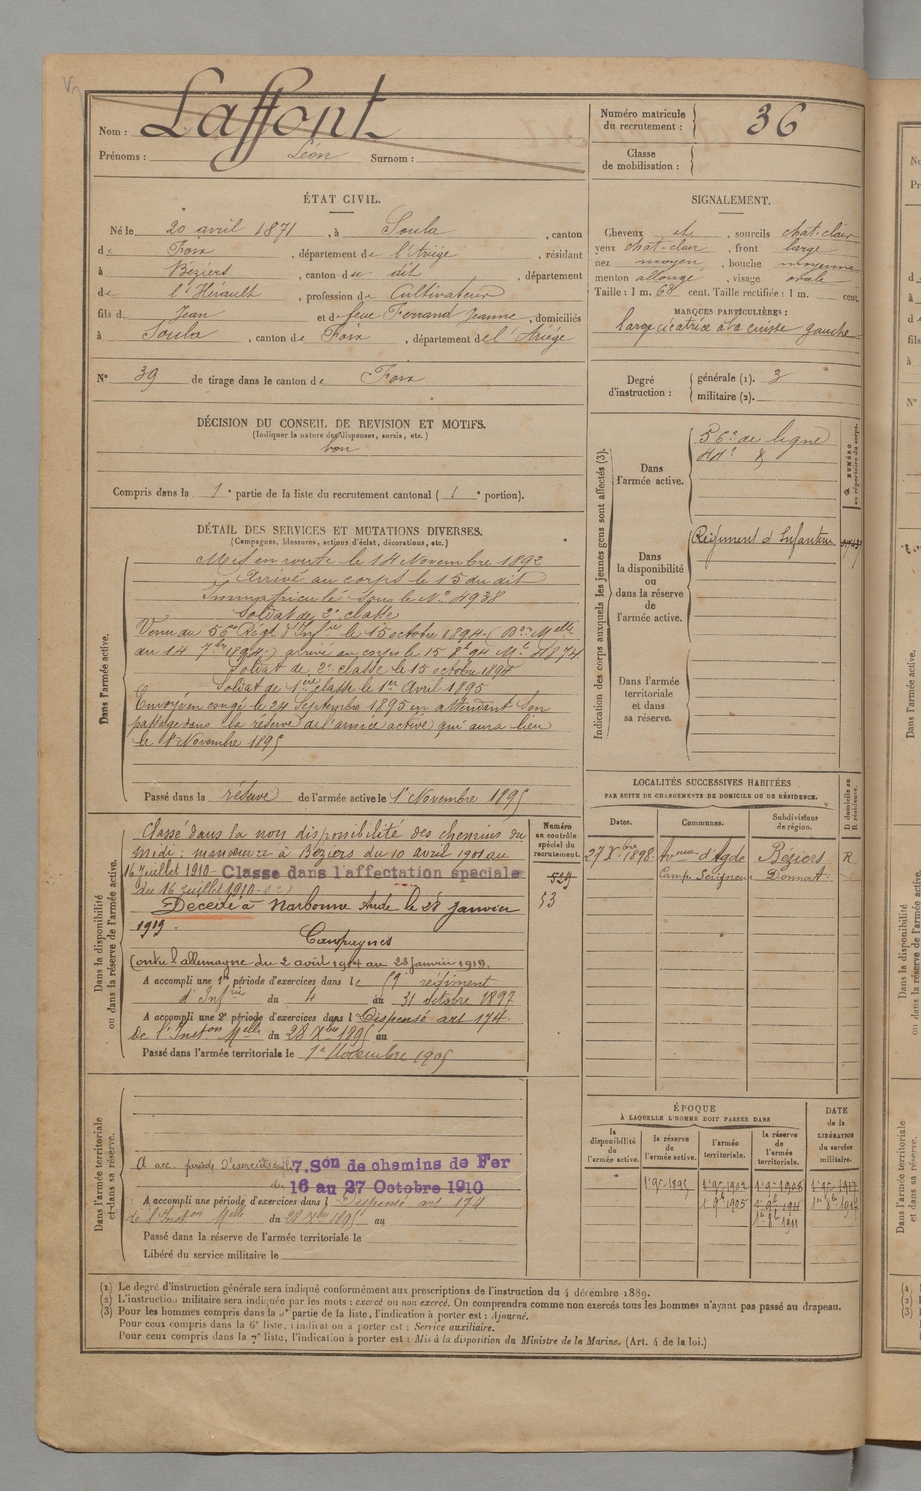 Nom : Laffont
Prénoms : Léon Surnom :
Numéro matricule du recrutement : 36
Classe de mobilisation :
ÉTAT CIVIL.
Né le 20 avril 1871, à Soula, canton
de Foix, département de l'Ariége, résidant
à Béziers, canton du dit, département
de l'Hérault, profession de Cultivateur
fils de Jean et de feue Ferrand Jeanne, domiciliés
à Soula, canton de Foix, département de l'Ariége
N° 39 de tirage dans le canton de Foix
SIGNALEMENT.
Cheveux et, sourcils chat-clair
yeux chat-clair, front large
nez moyen, bouche moyenne
menton allongé, visage ovale
Taille : 1 m. 68 cent. Taille rectifiée : 1 m. cent.
MARQUES PARTICULIÈRES :
large cicatrice à la cuisse gauche
Degré d'instruction : générale (1). 3
militaire (2).
DÉCISION DU CONSEIL DE REVISION ET MOTIFS.
(Indiquer la nature des dispenses, sursis, etc.)
bon
Compris dans la 1e partie de la liste du recrutement cantonal ( 1e portion).
Indication des corps auxquels les jeunes gens sont affectés (3).
NUMÉRO au répertoire du corps.
Dans l'armée active.
56e de ligne
Dans la disponibilité ou dans la réserve de l'armée active.
Régiment d'Infanterie
Dans l'armée territoriale et dans sa réserve.
DÉTAIL DES SERVICES ET MUTATIONS DIVERSES.
(Campagnes, blessures, actions d'éclat, décorations, etc.)
Dans l'armée active.
Mis en route le 14 Novembre 1892
Arrivé au corps le 15 du dit
Immatriculé sous le No 4938
Soldat de 2e classe
Venu du 56e Régt d'Infie le 15 octobre 1894 (Don Melle
du 14 7bre 1894) arrivé au corps le 15 8bre 94 Mle
Soldat de 2e classe le 15 octobre 1894
Soldat de 1ère classe le 1er Avril 1895
Envoyé en congé le 24 Septembre 1895 en attendant son
passage dans la réserve de l'armée active qui aura lieu
le 1er Novembre 1895
Passé dans la réserve de l'armée active le 1er Novembre 1895
Dans la disponibilité ou dans la réserve de l'armée active.
Numéro au contrôle spécial du recrutement.
529
53
Classé dans la non disponibilité des chemins du
midi : manœuvre à Béziers du 10 avril 1901 au
16 Juillet 1910 - Classé dans l'affectation spéciale
du 16 juillet 1910
Décédé à Narbonne Aude le 28 janvier
1919.
Campagnes
Contre l'allemagne du 2 août 1914 au 28 janvier 1919.
A accompli une 1re période d'exercices dans le régiment
d'Infie du 4 au 31 octobre 1897
A accompli une 2e période d'exercices dans l Dispensé art 174
de l'Inston Melle du 28 Xbre 1895 au
Passé dans l'armée territoriale le 1er Novembre 1905
LOCALITÉS SUCCESSIVES HABITÉES
PAR SUITE DE CHANGEMENTS DE DOMICILE OU DE RÉSIDENCE.
Dates. Communes. Subdivisions de région. D domicile ou R résidence.
27 Xbre 1898 Avenue d'Agde Béziers R
Camp Seigneur Donnat
Dans l'armée territoriale et dans sa réserve.
A acc. période d'exercices dans la 7. Son de chemins de Fer
du 16 au 27 Octobre 1910
A accompli une période d'exercices dans l Dispensé art 174
de l'Inston Melle du 28 Xbre 1895 au
Passé dans la réserve de l'armée territoriale le
Libéré du service militaire le
ÉPOQUE
À LAQUELLE L'HOMME DOIT PASSER DANS
la disponibilité de l'armée active. la réserve de l'armée active. l'armée territoriale. la réserve de l'armée territoriale.
DATE de la LIBÉRATION du service militaire.
(1) Le degré d'instruction générale sera indiqué conformément aux prescriptions de l'instruction du 4 décembre 1889.
(2) L'instruction militaire sera indiquée par les mots : exercé ou non exercé. On comprendra comme non exercés tous les hommes n'ayant pas passé au drapeau.
(3) Pour les hommes compris dans la 5e partie de la liste, l'indication à porter est : Ajourné.
Pour ceux compris dans la 6e liste, l'indication à porter est : Service auxiliaire.
Pour ceux compris dans la 7e liste, l'indication à porter est : Mis à la disposition du Ministre de la Marine. (Art. 4 de la loi.)